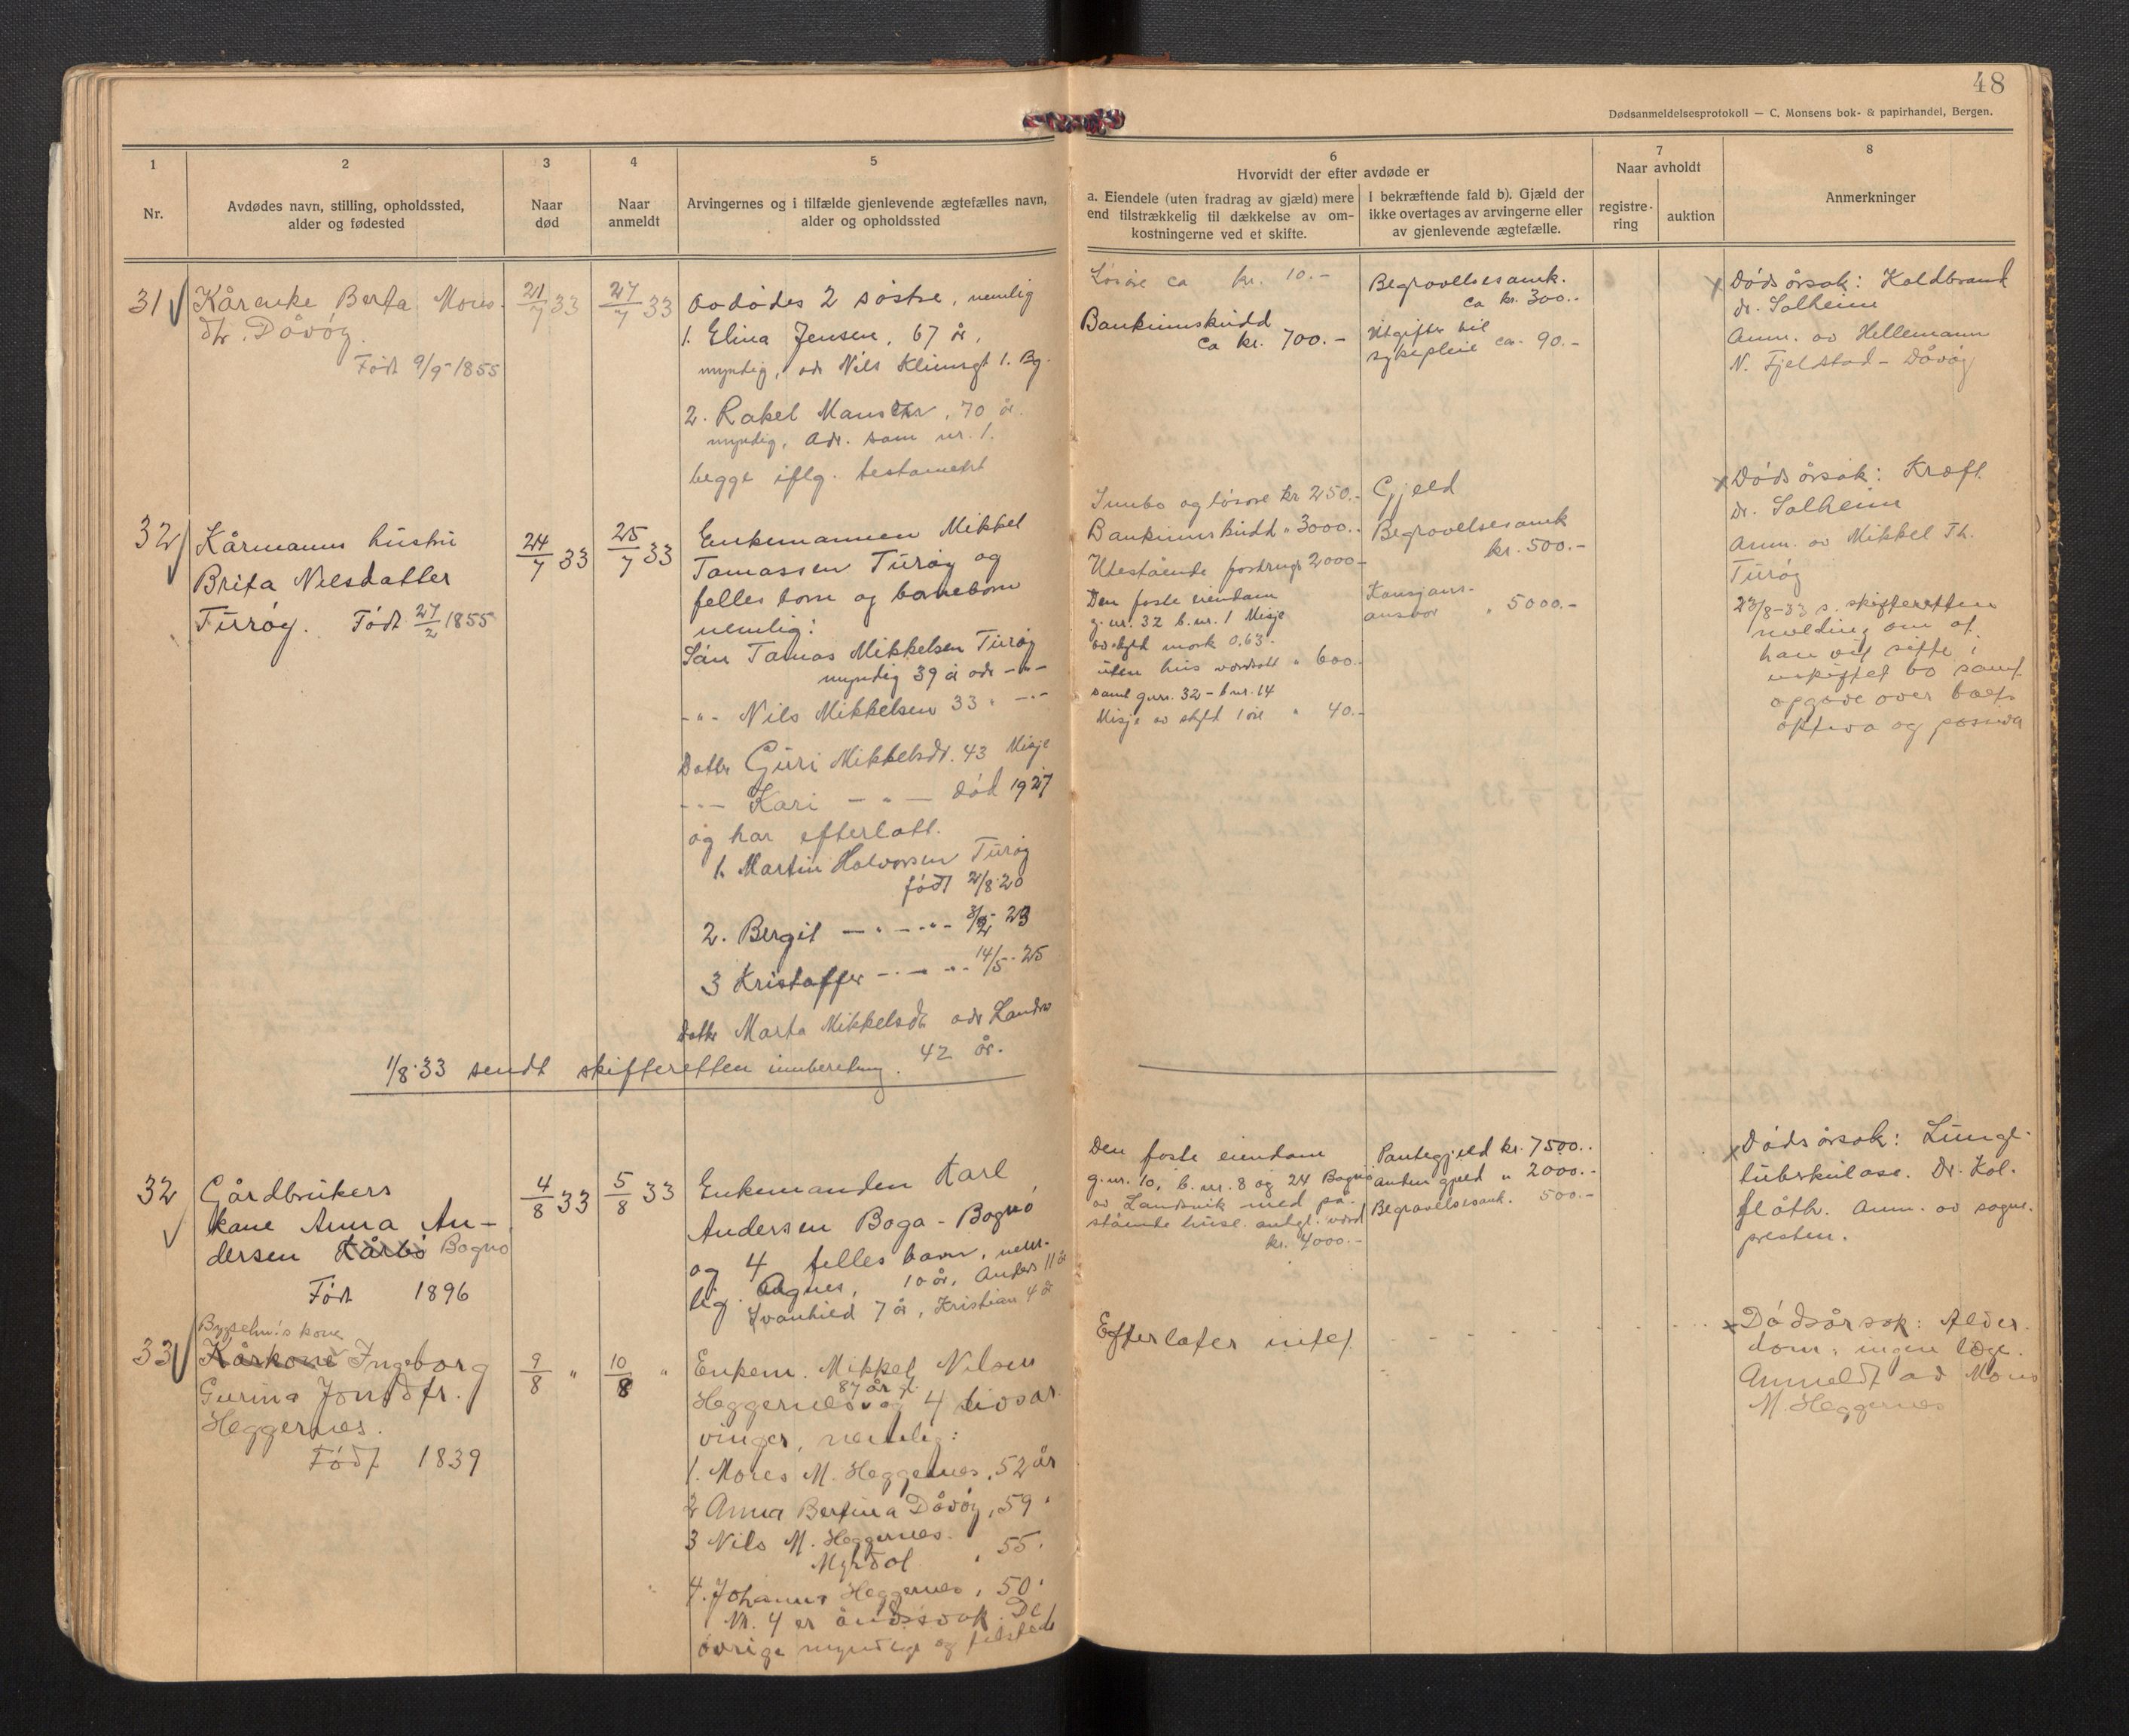 48
Dødsanmeldelsesprotokoll — C. Monsens bok- & papirhandel, Bergen.
1
Nr.
2
Avdødes navn, stilling, opholdssted,
alder og fødested
3
Naar
død
4
Naar
anmeldt
5
Arvingernes og i tilfælde gjenlevende ægtefælles navn,
alder og opholdssted
6
Hvorvidt der efter avdøde er
a. Eiendele (uten fradrag av gjæld) mere
end tilstrækkelig til dækkelse av om-
kostningerne ved et skifte.
I bekræftende fald b). Gjæld der
ikke overtages av arvingerne eller
av gjenlevende ægtefælle.
7
Naar avholdt
registre-
ring
auktion
8
Anmerkninger
31
Kårenke Berta Mons-
dtr. Dåvøy
Født 9/9-1855
21/7 33
27/7 33
avdødes 2 søstre, nemlig
1. Elina Jensen, 67 år,
myndig, adr Nils Klims gt 1. Bg.
2. Rakel Mansdtr, 70 år.
myndig, adr. som nr. 1.
begge iflg. testament
Løsøre ca kr. 10.-
Bankinnskudd
ca kr. 700.-
Begravelsesomk.
ca kr. 300.-
Utgifter til
sykepleie ca. 90.-
Dødsårsak: Koldbrand
dr. Solheim
Anm. av Hellemann
N. Fjeldstad - Dåvøy
32
Kårmanns hustru
Brita Nilsdatter
Turøy. Født 27/2 1855
24/7 33
25/7 33
Enkemannen Mikkel
Tomassen Turøy og
felles born og boneborn
nemlig:
Søn Tomas Mikkelsen Turøy
myndig 39 å adr -"-
-"- Nils Mikkelsen 33 " -"-
Datter Guri Mikkelsdt. 43 Misje
-"- Kari -"- død 1927
og har efterlatt.
1. Martin Halvorsen Turøy
født 2/8-20
2. Bergit -"- -"- 23
3 Kristoffer -"- -"- 14/5-25
datter Marta Mikkelsdt adr Landro
42 år.
1/8-33 sendt skifteretten innberetning.
Innbo og løsøre kr 250.-
Bankinnskudd " 3000.-
Utestående fordringr 2000.-
Den faste eiendom
g.nr. 32 b.nr. 1 Misje
av skyld mark 0,63.-
uten hus verdsatt " 600.-
samt g.nr. 32 - b.nr. 14
Misje av skyld 1 øre " 40.-
Gjeld
Begravelsesomk
kr. 500.-
Kausjons-
ansvar " 5000.-
Dødsårsak: Kreft
dr. Solheim
Anm. av Mikkel Th.
Turøy
23/8-33 s. skifteretten
melding om at
han vil sitte i
uskiftet bo samt
opgave over boets
aktiva og passiva
32
Gårdbrukers
kone Anna An-
dersen Kårbø Bogno
Født 1896
4/8 33
5/8 33
Enkemanden Karl
Andersen Boga - Bognø
og 4 felles barn, nem-
lig. Agnes, 10 år, Anders 11 år
Svanhild 7 år, Kristian 4 år
Den faste eiendom
g.nr. 10, b.nr. 8 og 24 Bogno
av Landsvik med på-
stående huse. antgl. verd
kr. 4000.-
Pantegjeld kr. 7500.-
Anden gjeld " 2000.-
Begravelsesomk. 500.-
Dødsårsak: Lunge-
tuberkulose. Dr. Kol-
flåth. Anm. av sogne-
presten.
33
Bygselm.s kone
Kårkone Ingeborg
Gurina Jonsdtr.
Heggernes.
Født 1839
9/8 "
10/8 "
Enkem. Mikkel Nilsen
87 år g.
Heggernes og 4 livsar-
vinger, nemlig:
1. Mons M. Heggernes, 52 år
2 Anna Bertina Dåvøy, 59 "
3 Nils M. Heggernes.
Myrdal " 55.
4. Johannes Heggernes, 50 "
Nr. 4 er åndssvak. De
øvrige myndige og tilstede
Efterlater intet.
Dødsårsak: Alder-
dom, ingen læge.
Anmeldt av Mons
M. Heggernes